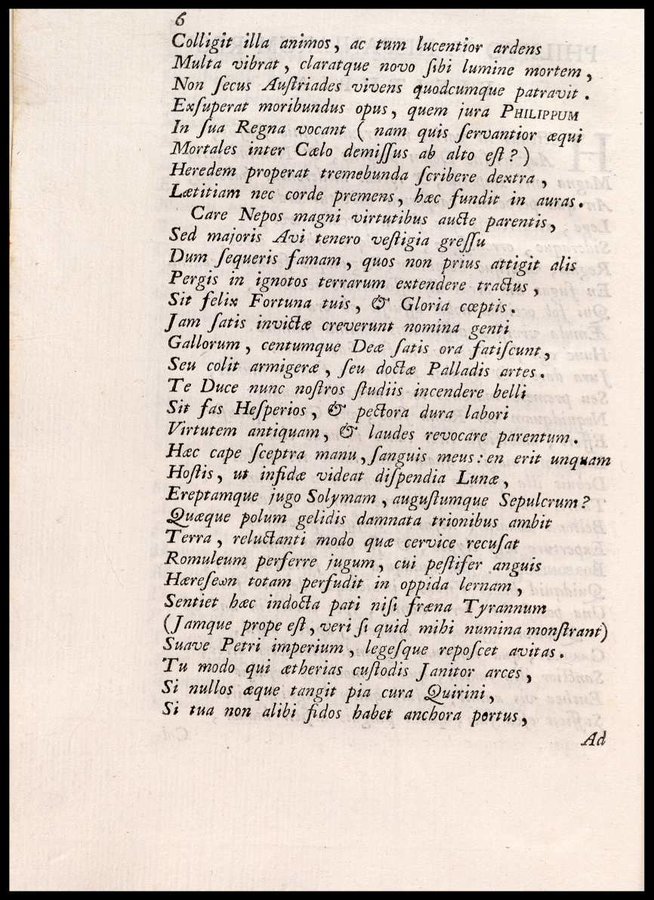 6
Colligit illa animos, ac tum lucentior ardens
Multa vibrat, claratque novo ſibi lumine mortem,
Non ſecus Auſtriades vivens quodcumque patravit.
Exſuperat moribundus opus, quem jura PHILIPPUM
In ſua Regna vocant (nam quis ſervantior æqui
Mortales inter Cælo demiſſus ab alto eſt?)
Heredem properat tremebunda ſcribere dextra,
Lætitiam nec corde premens, hæc fundit in auras.
Care Nepos magni virtutibus aucte parentis,
Sed majoris Avi tenero veſtigia greſſu
Dum ſequeris famam, quos non prius attigit alis
Pergis in ignotos terrarum extendere tractus,
Sit felix Fortuna tuis, & Gloria cœptis.
Jam ſatis invictæ creverunt nomina genti
Gallorum, centumque Deæ ſatis ora fatiſcunt,
Seu colit armigeræ, ſeu doctæ Palladis artes.
Te Duce nunc noſtros ſtudiis incendere belli
Sit fas Heſperios, & pectora dura labori
Virtutem antiquam, & laudes revocare parentum.
Hæc cape ſceptra manu, ſanguis meus: en erit unquam
Hoſtis, ut infidæ videat diſpendia Lunæ,
Ereptamque jugo Solymam, auguſtumque Sepulcrum?
Quæque polum gelidis damnata trionibus ambit
Terra, reluctanti modo quæ cervice recuſat
Romuleum perferre jugum, cui peſtifer anguis
Hæreſeωn totam perfudit in oppida lernam,
Sentiet hæc indocta pati niſi fræna Tyrannum
(Jamque prope eſt, veri ſi quid mihi numina monſtrant)
Suave Petri imperium, legeſque repoſcet avitas.
Tu modo qui ætherias cuſtodis Janitor arces,
Si nullos æque tangit pia cura Quirini,
Si tua non alibi fidos habet anchora portus,
Ad